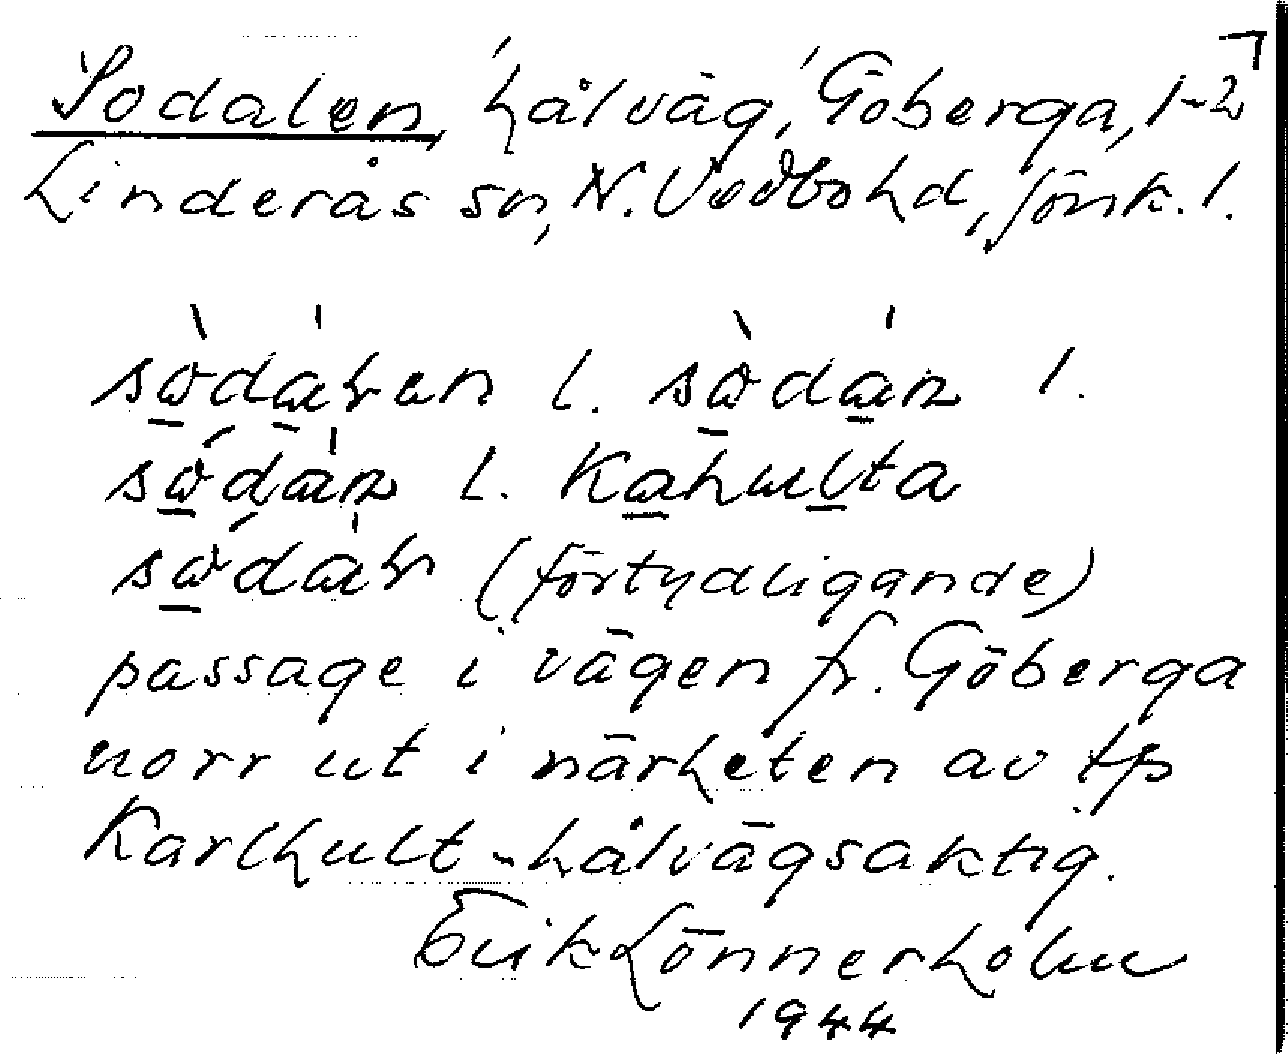 Sodalen, hålväg, Göberga, 1-2
Linderås sn, N. Vedbo hd, Jönk. l.
l. l.
l. Kahulta
(förtydligande)
passage i vägen fr. Göberga
norr ut i närheten av tp
Karlhult - hålvägsaktig.
Erik Lönnerholm
1944